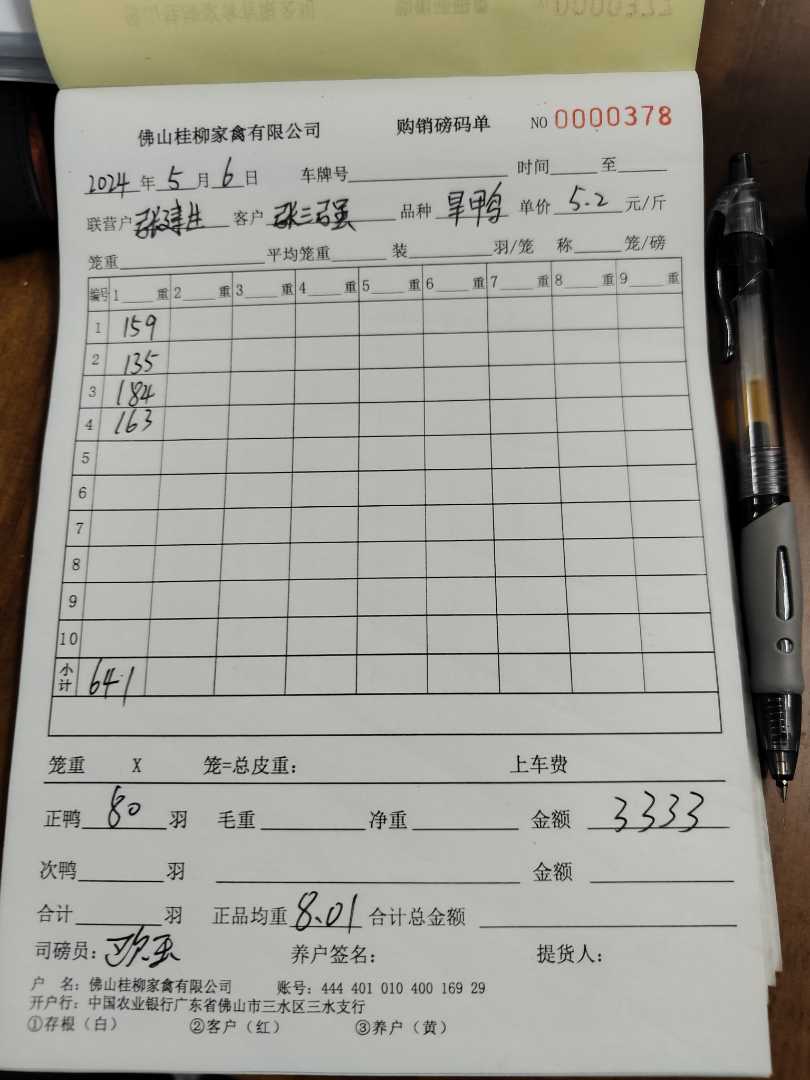 佛山桂柳家禽有限公司 购销磅码单 NO 0000378
2024年5月6日 车牌号 时间 至
联营户 张建生 客户 张三强 品种 旱鸭 单价 5.2 元/斤
笼重 平均笼重 装 羽/笼 称 笼/磅
编号 1 重 2 重 3 重 4 重 5 重 6 重 7 重 8 重 9 重
1 159
2 135
3 184
4 163
5
6
7
8
9
10
小计 641
笼重 X 笼=总皮重: 上车费
正鸭 80 羽 毛重 净重 金额 3333
次鸭 羽 金额
合计 羽 正品均重 8.01 合计总金额
司磅员: 养户签名: 提货人:
户 名: 佛山桂柳家禽有限公司 账号: 444 401 010 400 169 29
开户行: 中国农业银行广东省佛山市三水区三水支行
①存根（白） ②客户（红） ③养户（黄）